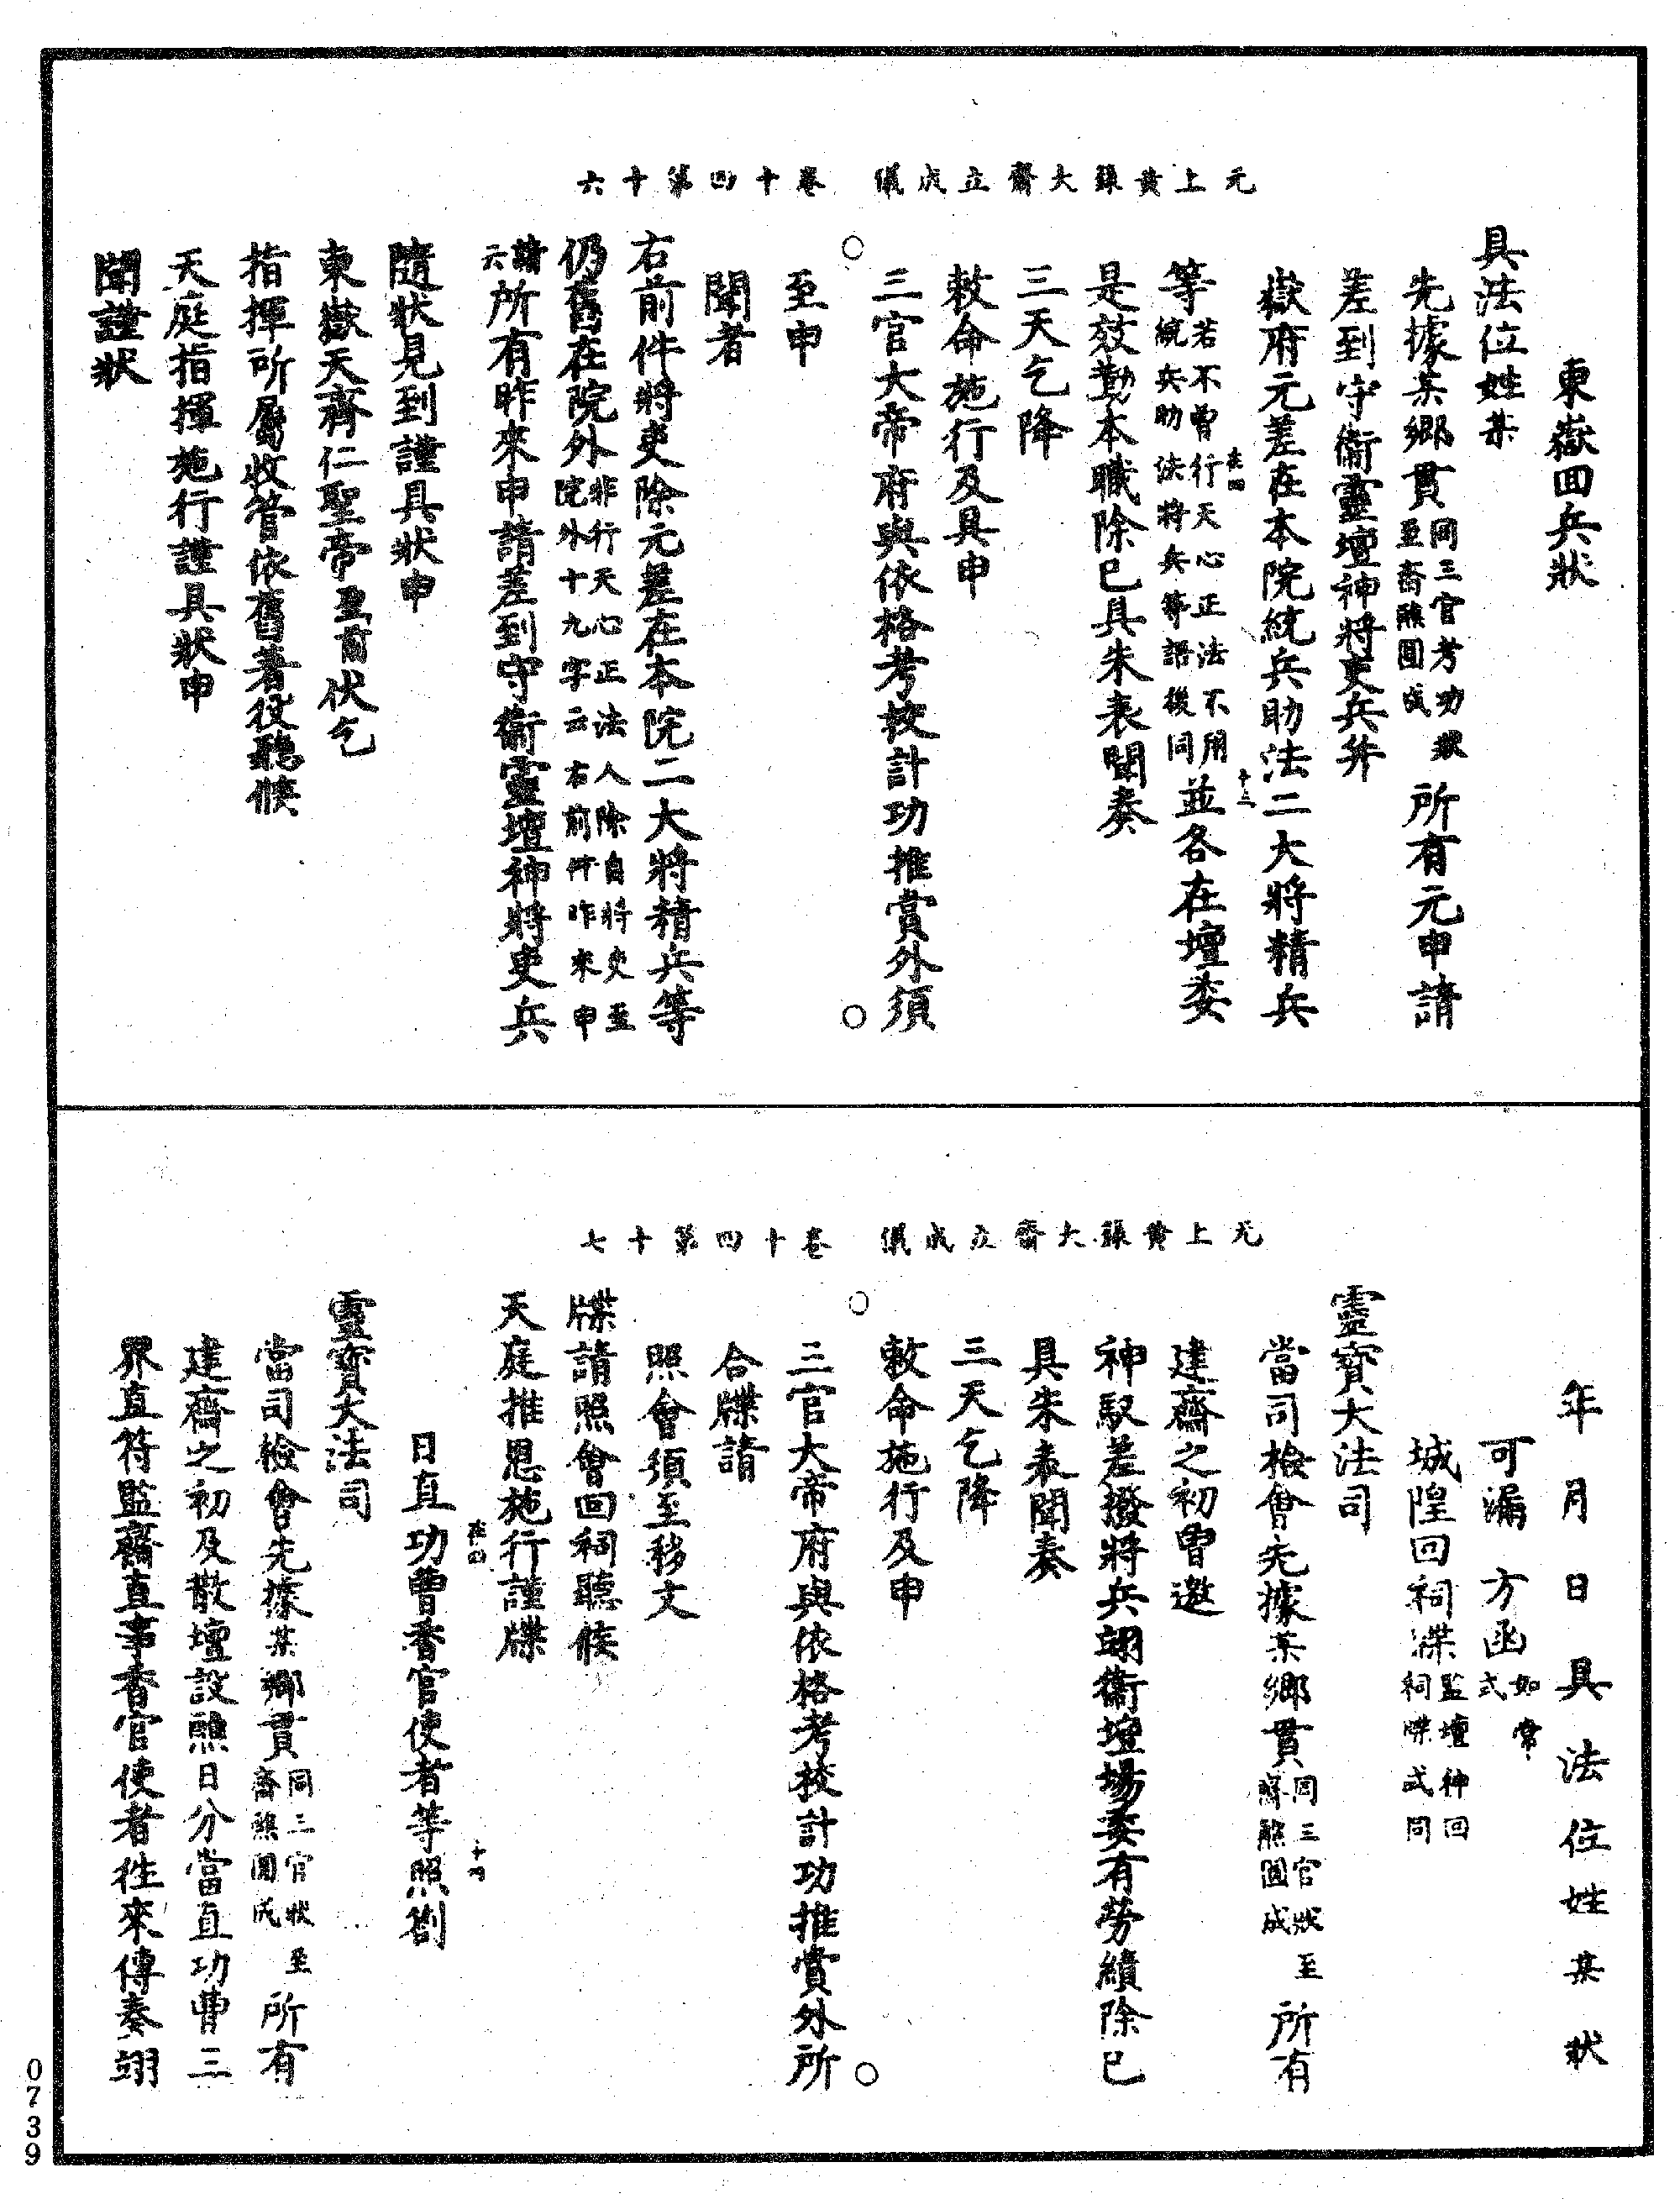 元上黃籙大齋立成儀　卷十四第十六
東嶽回兵狀
具法位姓某
先據某鄉貫同三官考功狀至齋醮圓成所有元申請
差到守衛靈壇神將吏兵并
嶽府元差在本院統兵助法二大將精兵
等若不曾行天心正法不用統兵助法將兵等語後同並各在壇委
是效勤本職除已具朱表聞奏
三天乞降
敕命施行及具申
三官大帝府與依格考校計功推賞外須
至申
聞者
右前件將吏除元差在本院二大將精兵等
仍舊在院外非行天心正法人除自將吏至院外十九字云右前件昨來申
請六所有昨來申請差到守衛靈壇神將吏兵
隨狀見到謹具狀申
東嶽天齊仁聖帝聖前伏乞
指揮所屬收管依舊著役聽候
天庭指揮施行謹具狀申
聞謹狀
元上黃籙大齋立成儀　卷十四第十七
年月日具法位姓某狀
可漏方函如常式
城隍回祠牒監壇神回祠牒式同
靈寶大法司
當司檢會先據某鄉貫同三官狀至齋醮圓成所有
建齋之初曾邀
神馭差撥將兵翊衛壇場委有勞績除已
具朱表聞奏
三天乞降
敕命施行及申
三官大帝府與依格考校計功推賞外所
合牒請
照會須至移文
牒請照會回祠聽候
天庭推恩施行謹牒
日直功曹香官使者等照劄
靈寶大法司
當司檢會先據某鄉貫同三官狀至齋醮圓成所有
建齋之初及散壇設醮日分當直功曹三
界直符監齋直事香官使者往來傳奏翊
0739